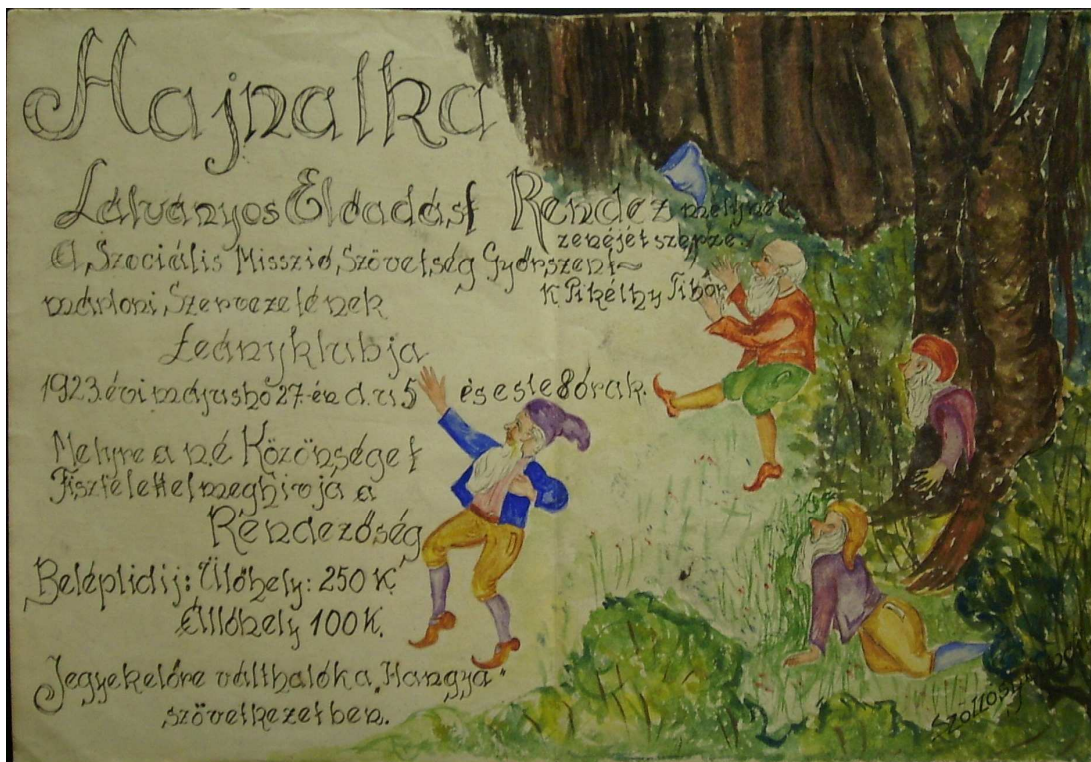 Hajnalka
Látványos Előadást Rendez melynek
zenéjét szerzé:
A Szociális Misszió Szövetség Győrszent-
K Pikéthy Tibor
mártoni Szervezetének
Leányklubja
1923. évi május hó 27-én d. u 5 és este 8 órak.
Melyre a n é Közönséget
Tisztelettel meghívja a
Rendezőség
Beléptidij: Ülőhely: 250 K
Állóhely 100 K.
Jegyek előre válthatók a "Hangya"
szövetkezetben.